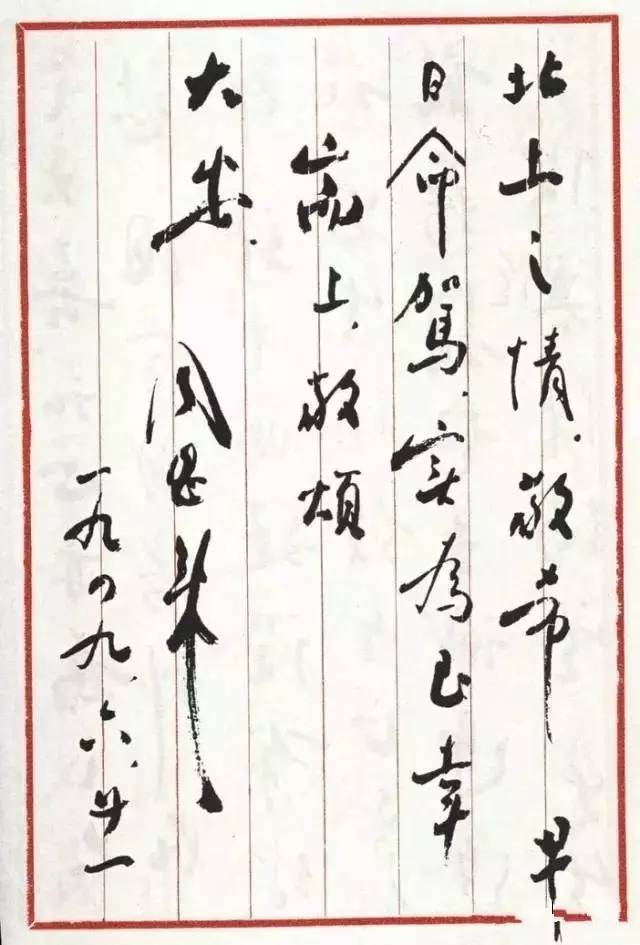 北上之情,敬希 早
日命駕,实为至幸
耑上,敬頌
大安
周恩來
一九四九.六.廿一